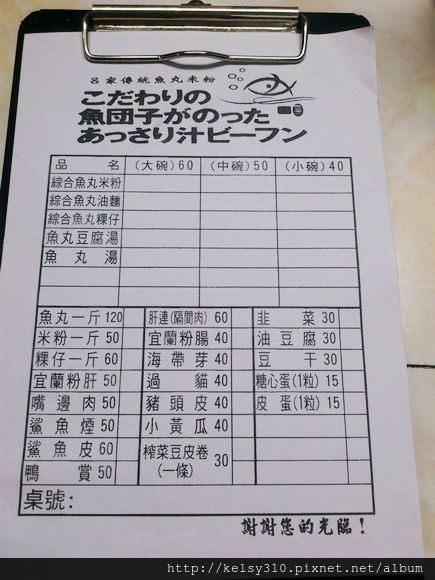 呂家傳統魚丸米粉
こだわりの
魚団子がのった
あっさり汁ビーフン
品 名 (大碗)60 (中碗)50 (小碗)40
綜合魚丸米粉
綜合魚丸油麵
綜合魚丸粿仔
魚丸豆腐湯
魚丸湯
魚丸一斤 120 肝連(隔間肉) 60 韭菜 30
米粉一斤 50 宜蘭粉腸 40 油豆腐 30
粿仔一斤 60 海帶芽 40 豆干 30
宜蘭粉肝 50 過貓 40 糖心蛋(1粒) 15
嘴邊肉 50 豬頭皮 40 皮蛋(1粒) 15
鯊魚煙 50 小黃瓜 40
鯊魚皮 60 榨菜豆皮卷 30
鴨賞 50 (一條)
桌號:
謝謝您的光臨!
http://kelsy310.pixnet.net/album